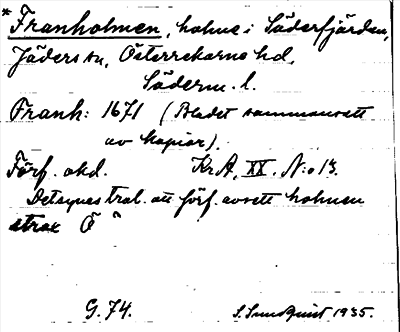 * Franholmen, holme i Söderfjärden,
Jäders sn, Österrekarne hd,
Söderm. l.
Franh: 1671 (Bladet sammansatt
av kopior).
Förf. okd. Kr.A. XX. N:o 13.
Det synes trol. att förf. avsett holmen
strax Ö
G. 74. S. Sundquist 1935.